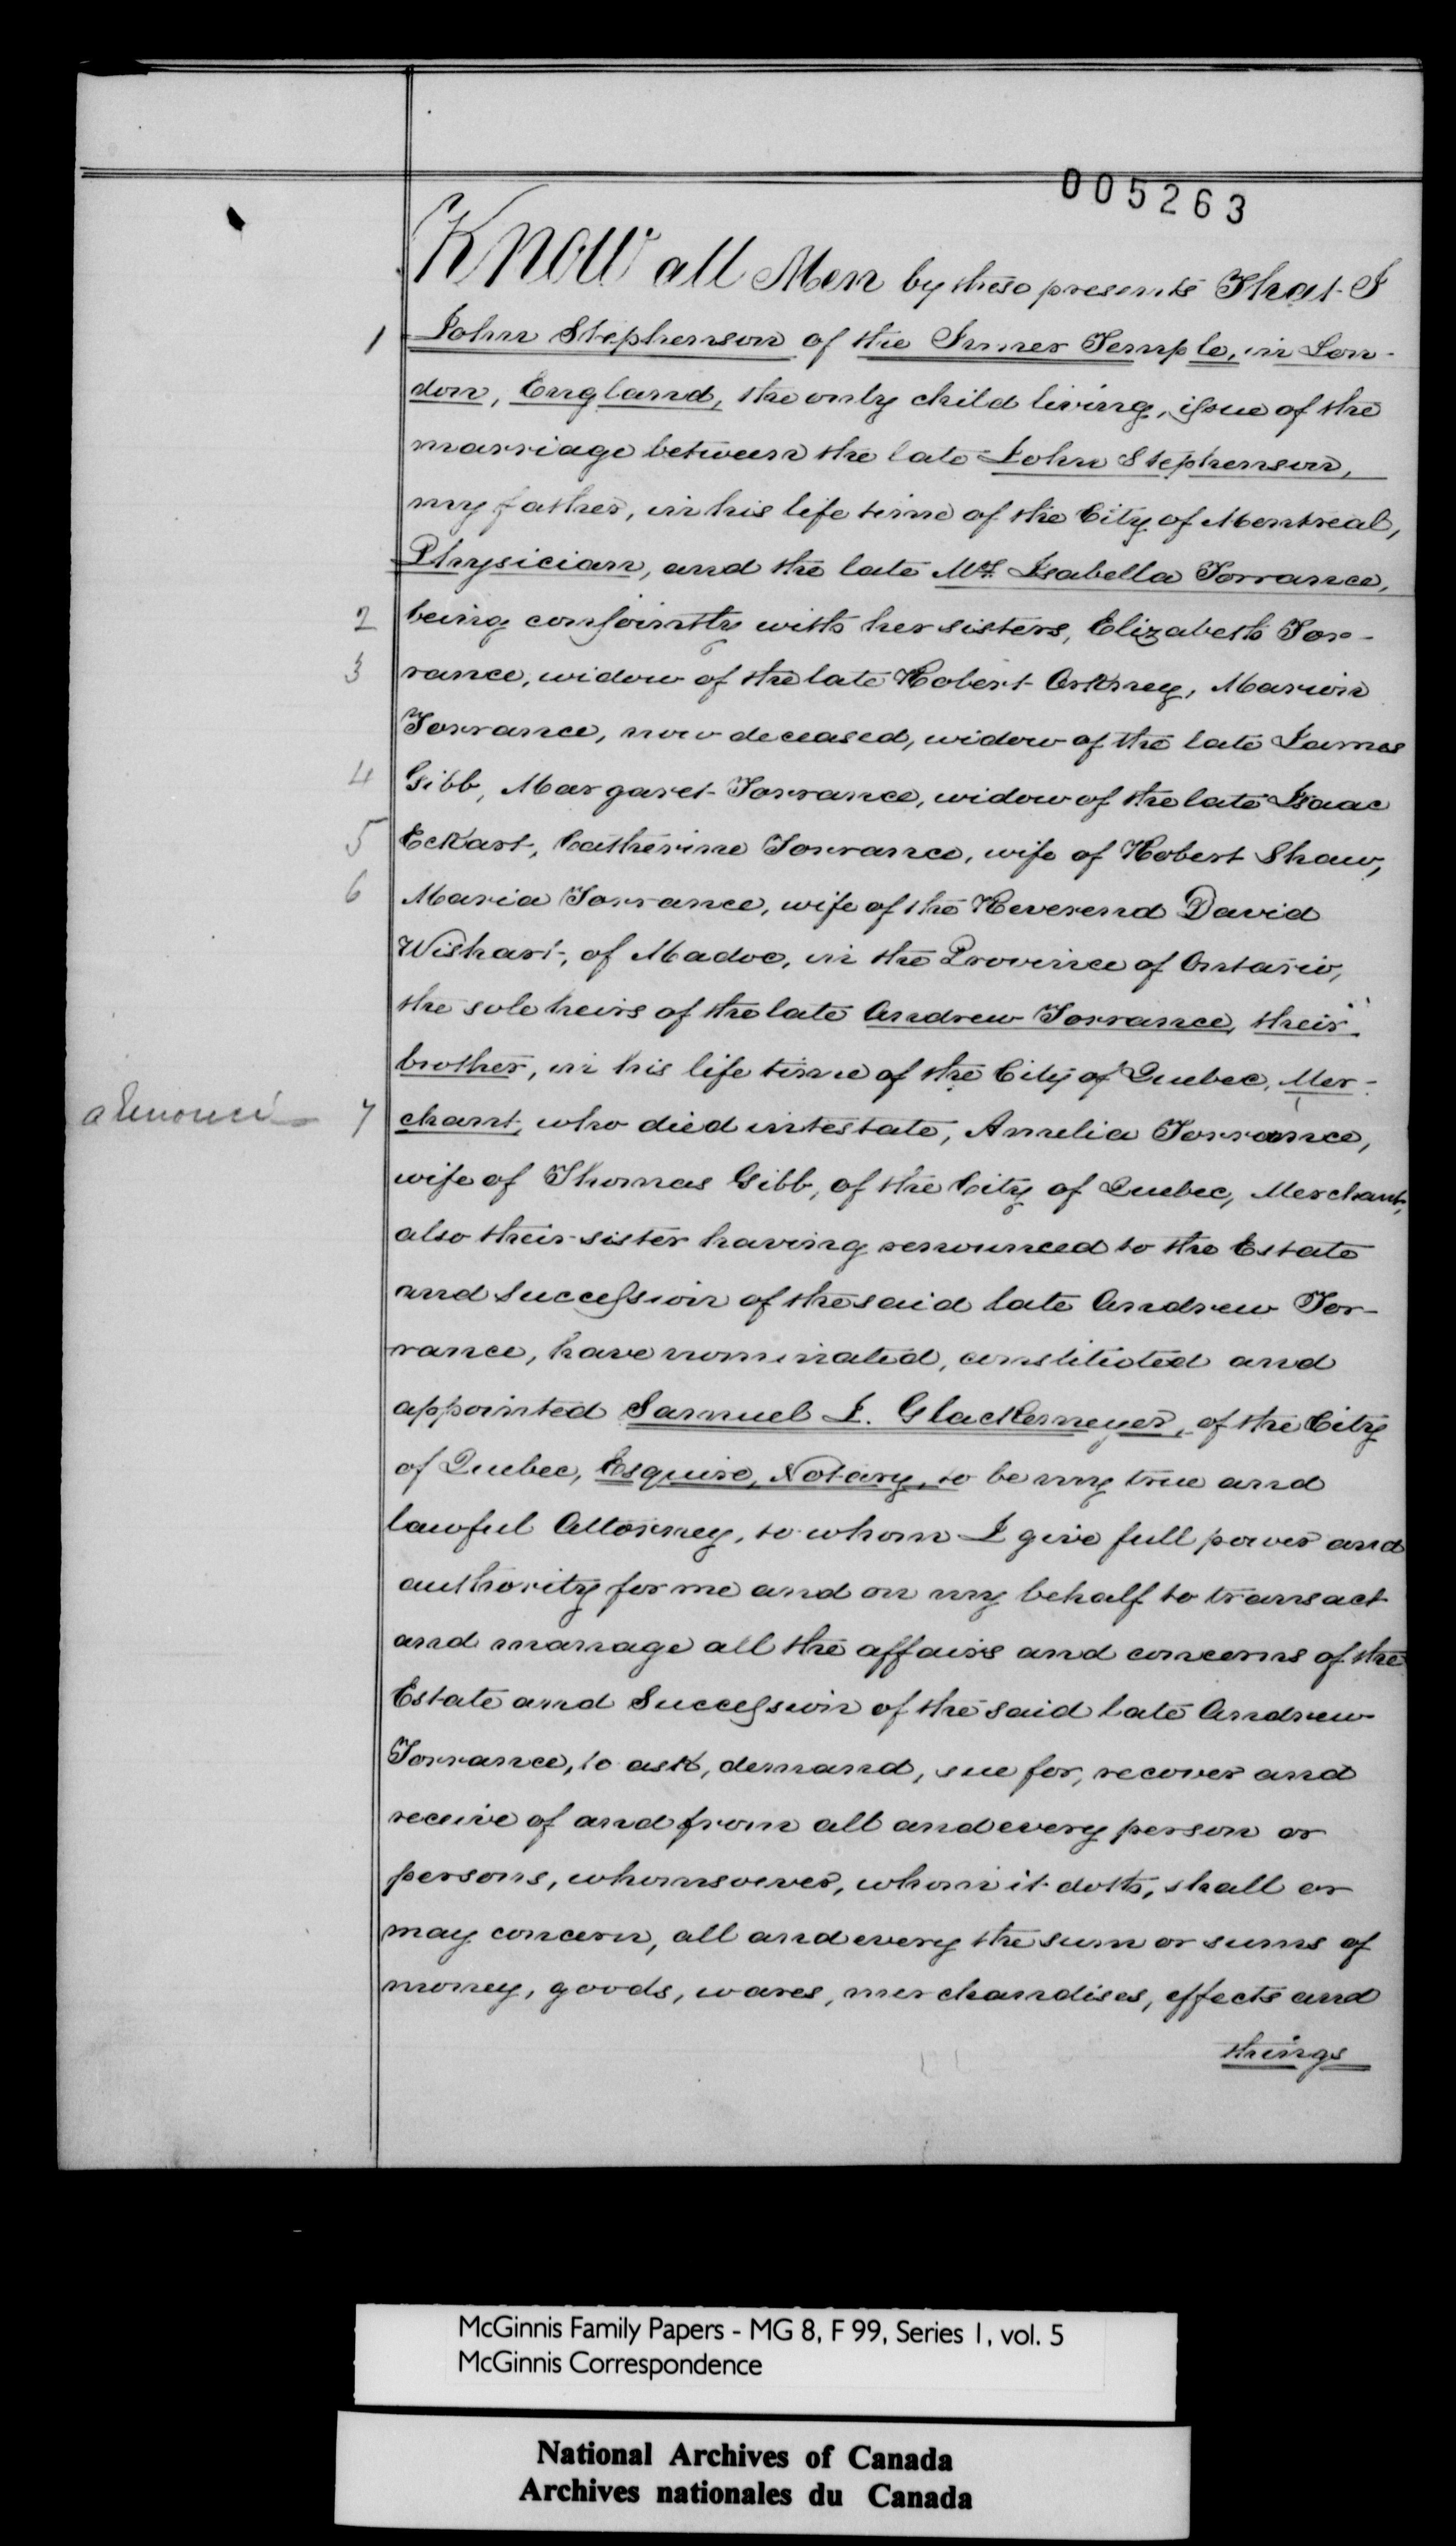 005263
Know all Men by these presents That I
1 John Stephenson of the Inner Temple, in Lon-
don, England, the only child living, issue of the
marriage between the late John Stephenson,
my father, in his life time of the City of Montreal,
Physician, and the late Mrs. Isabella Torrance,
2 being conjointly with her sisters, Elizabeth Tor-
3 rance, widow of the late Robert Orkney, Marion
Torrance, now deceased, widow of the late James
4 Gibb, Margaret Torrance, widow of the late Isaac
5 Eckart, Catherine Torrance, wife of Robert Shaw,
6 Maria Torrance, wife of the Reverend David
Wishart, of Madoc, in the Province of Ontario,
the sole heirs of the late Andrew Torrance, their
brother, in his life time of the City of Quebec, Mer-
a renoncé 7 chant, who died intestate, Amelia Torrance,
wife of Thomas Gibb, of the City of Quebec, Merchant,
also their sister having renounced to the Estate
and Succession of the said late Andrew Tor-
rance, have nominated, constituted and
appointed Samuel I. Glackemeyer, of the City
of Quebec, Esquire, Notary, to be my true and
lawful Attorney, to whom I give full power and
authority for me and on my behalf to transact
and manage all the affairs and concerns of the
Estate and Succession of the said late Andrew
Torrance, to ask, demand, sue for, recover and
receive of and from all and every person or
persons, whomsoever, whom it doth, shall or
may concern, all and every the sum or sums of
money, goods, wares, merchandises, effects and
things
McGinnis Family Papers - MG 8, F 99, Series 1, vol. 5
McGinnis Correspondence
National Archives of Canada
Archives nationales du Canada